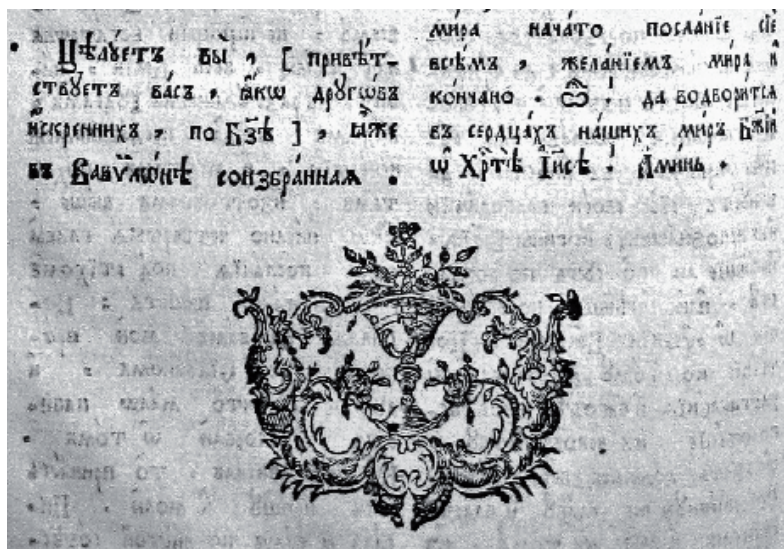 Цѣлуетъ вы , [ привѣт-
ствꙋетъ ва́съ , ꙗ҆́кѡ дрꙋгѡ́въ
и҆́скреннихъ , по Бз҃ѣ ] , ꙗ҆́же
въ Вавѷлѡ́нѣ соизбра́нная .
ми́ра нача́то посла́нїе сїе
всѣ́мъ , жела́нїемъ ми́ра и
ко́нчано . Ѽ ! да водворѧ́тсѧ
въ сердца́хъ на́шихъ ми́ръ Бж҃їй
ѡ҆ Хрⷭ҇тѣ̀ І҆и҃сѣ ! А҆ми́нь .